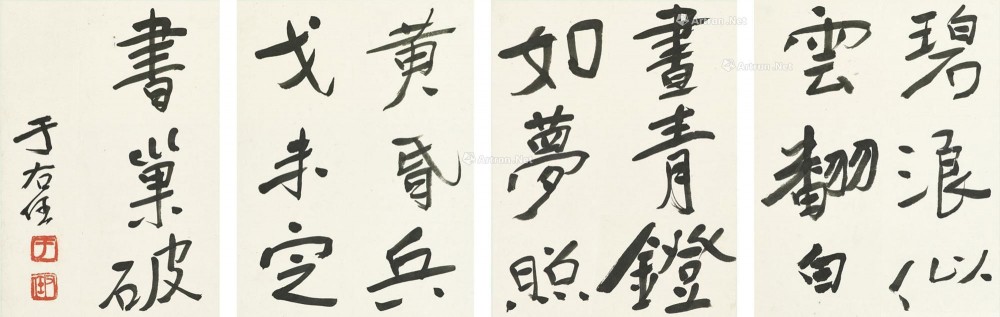 碧浪似
雲翻白
晝青鐙
如夢照
黃昏兵
戈未定
書巢破
于右任
Astron.Net
Astron.Net
Astron.Net